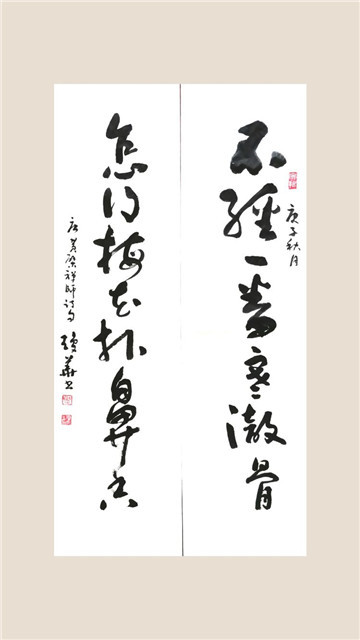 庚子秋月
不經一番寒澈骨
怎得梅花扑鼻香
唐黄檗禅師诗句
華书